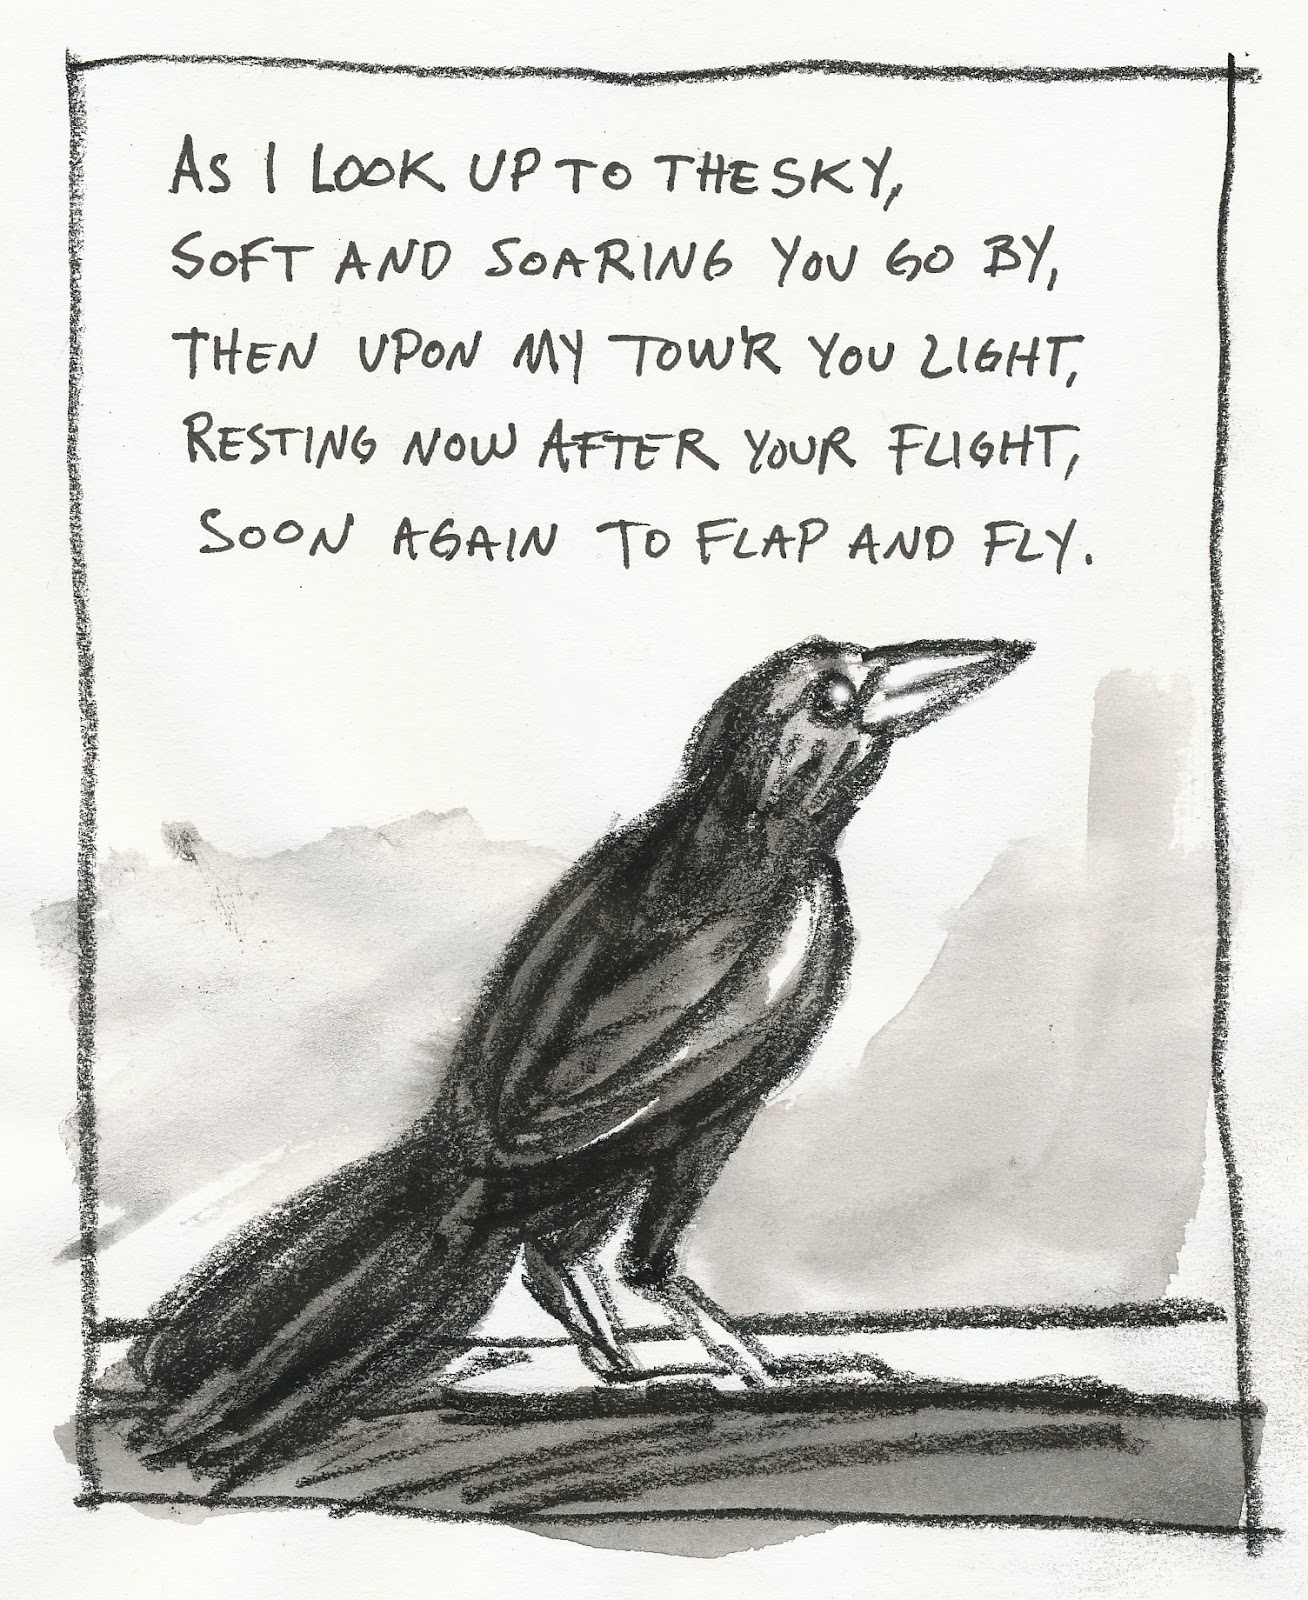 AS I LOOK UP TO THE SKY,
SOFT AND SOARING YOU GO BY,
THEN UPON MY TOW'R YOU LIGHT,
RESTING NOW AFTER YOUR FLIGHT,
SOON AGAIN TO FLAP AND FLY.